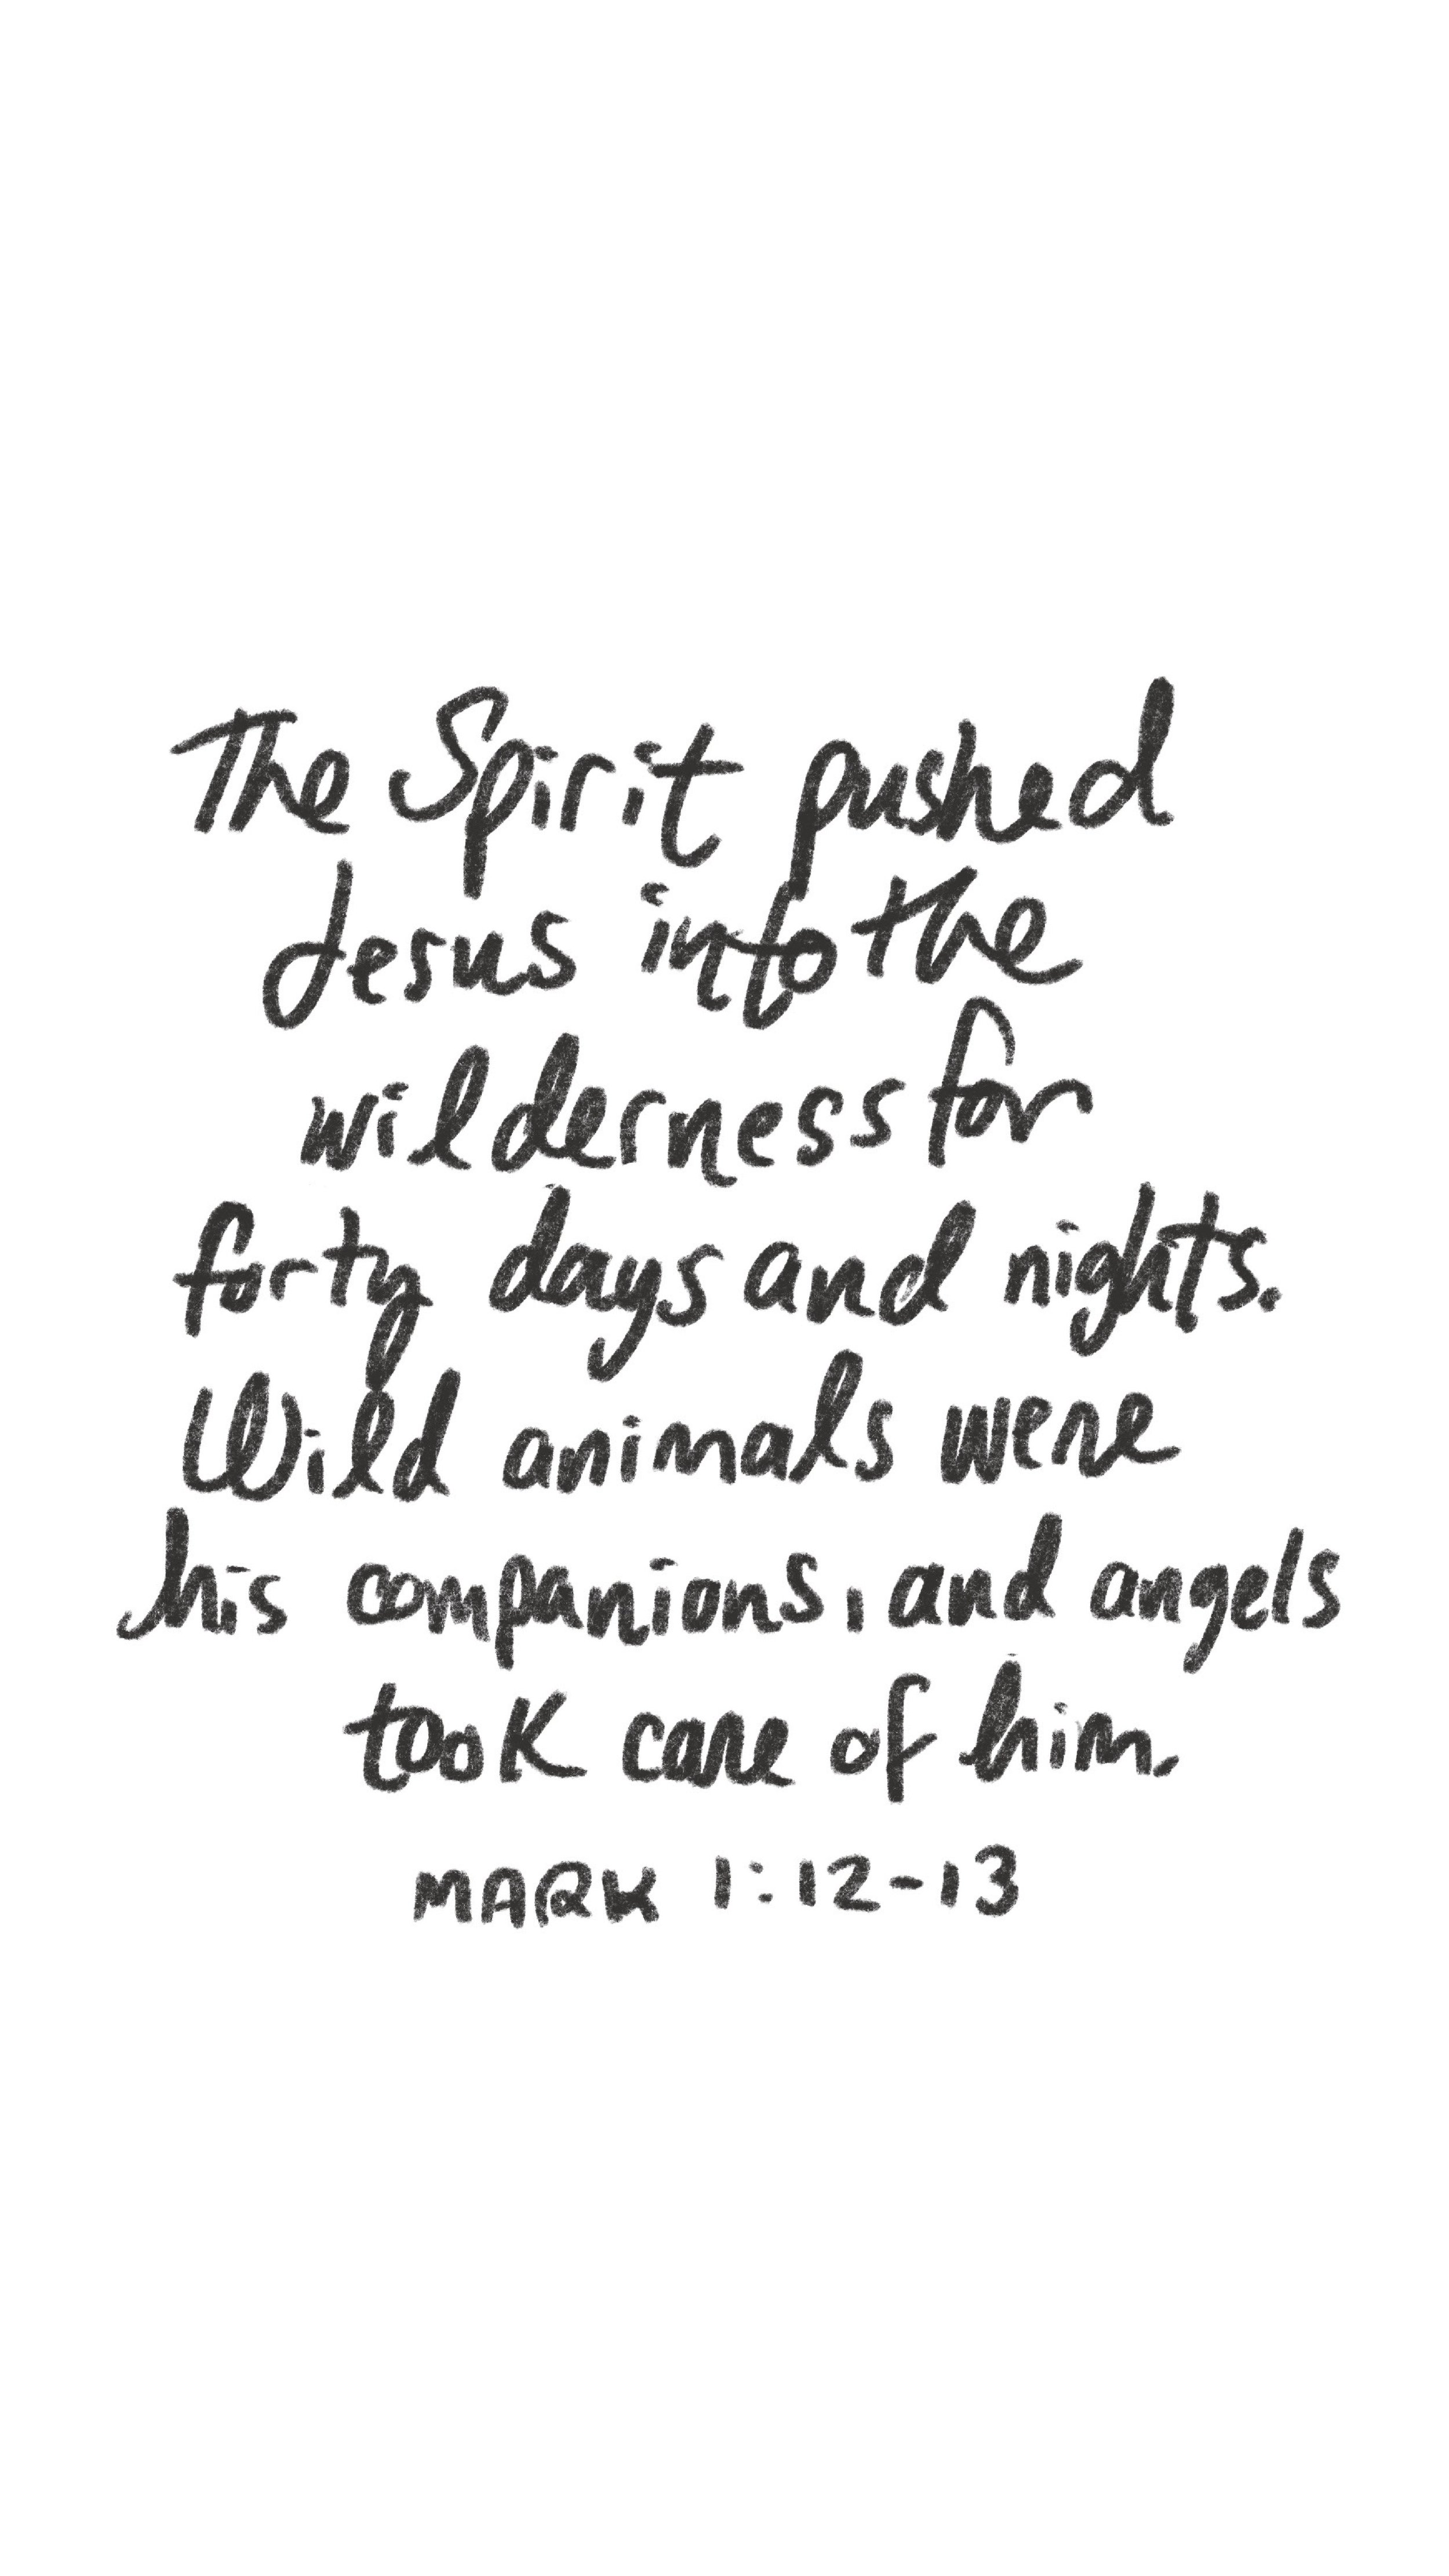 The Spirit pushed
Jesus into the
wilderness for
forty days and nights.
Wild animals were
his companions, and angels
took care of him.
MARK 1:12-13